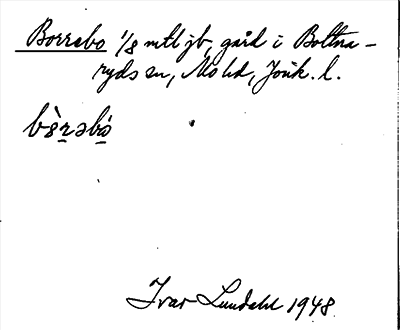 Borrabo 1/8 mtl jb, gård i Boltna-
ryds sn, Mo hd, Jönk. l.
bòrəbó
Ivar Lundahl 1948